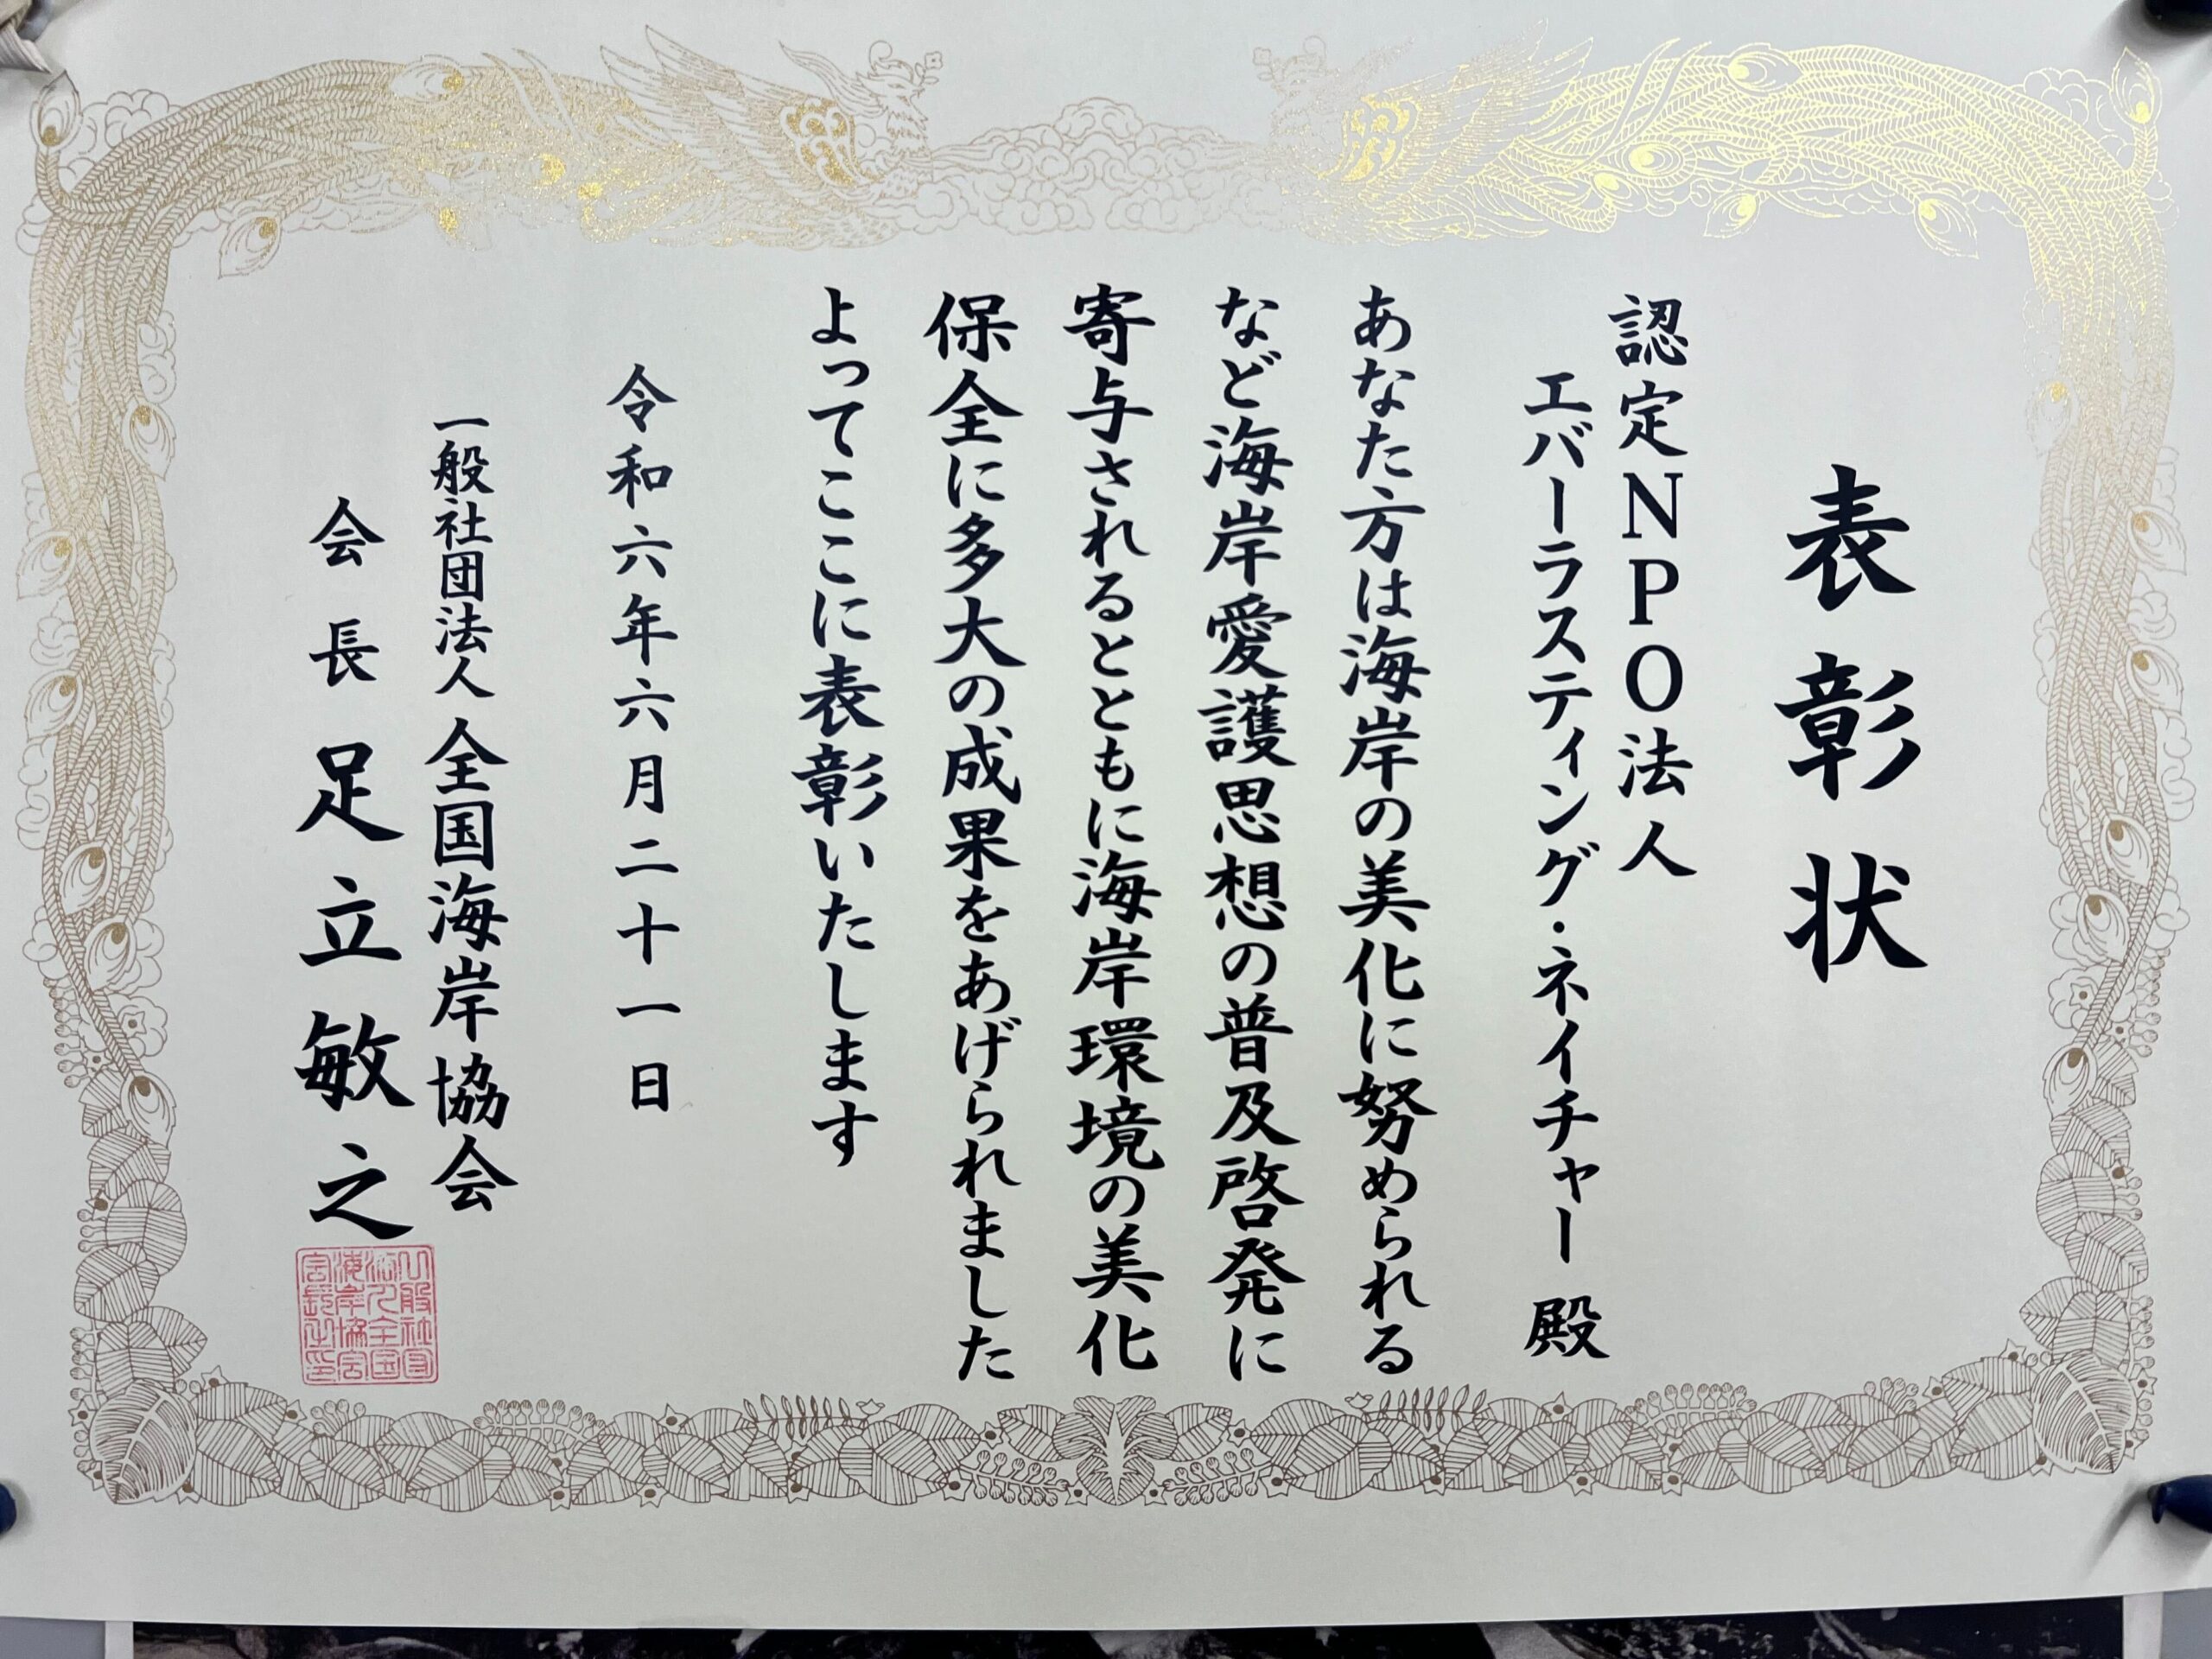 表彰状
認定NPO法人
エバーラスティング・ネイチャー 殿
あなた方は海岸の美化に努められる
など海岸愛護思想の普及啓発に
寄与されるとともに海岸環境の美化
保全に多大の成果をあげられました
よってここに表彰いたします
令和六年六月二十一日
一般社団法人 全国海岸協会
会長 足立敏之
一般社団
法人全国
海岸協会
会長之印